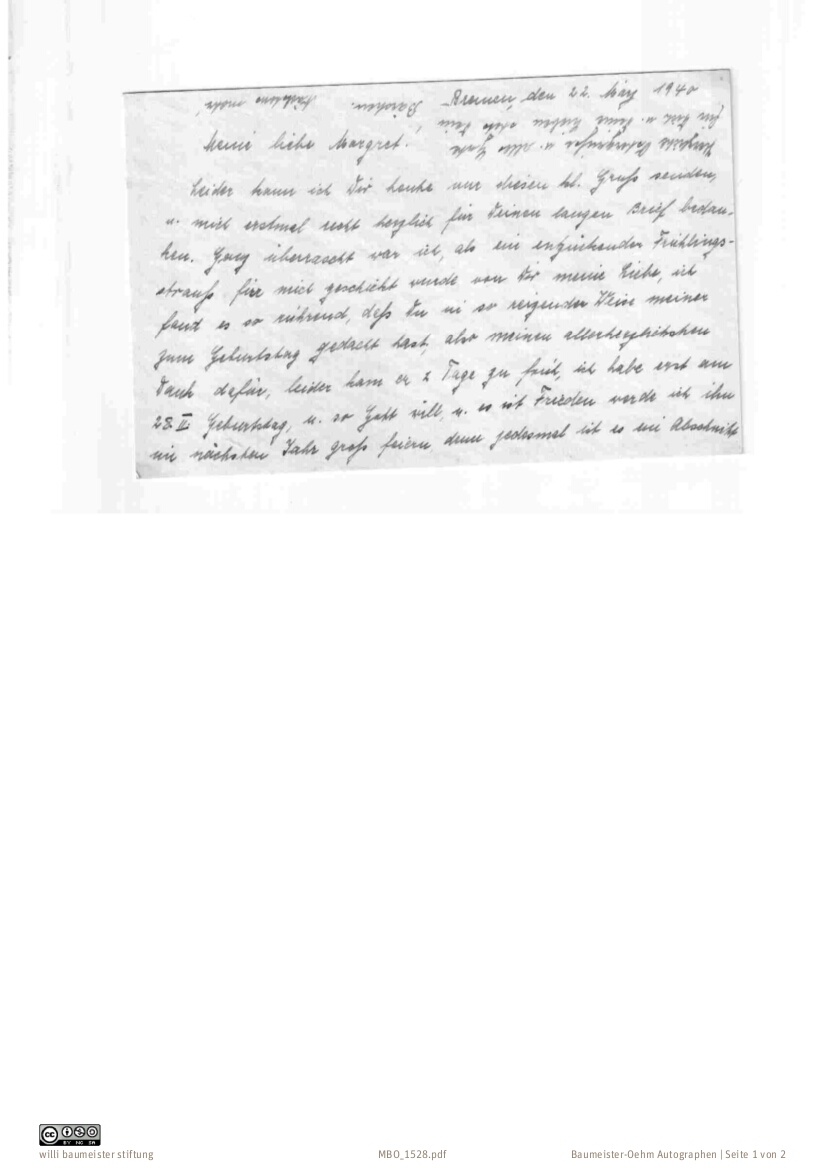 Bremen, den 22. März 1940
Meine liebe Margret.
Leider kann ich Dir heute nur diesen kl. Gruß senden,
u. mich erstmal recht herzlich für Deinen langen Brief bedan-
ken. Ganz überrascht war ich, als ein entzückender Frühlings-
strauß für mich geschickt wurde von Dir meine Liebe, ich
fand es so rührend, daß Du in so reizender Weise meiner
zum Geburtstag gedacht hast, also meinen allerherzlichsten
Dank dafür, leider kam er 2 Tage zu früh, ich habe erst am
Geburtstag, u. so Gott will, u. es ist Frieden werde ich ihn
im nächsten Jahr groß feiern denn jedesmal ist es ein Abschnitt
Herzliche Ostergrüße u. alles Gute
für Dich u. Deine Lieben stets Dein
Bärchen.
willi baumeister stiftung
MBO_1528.pdf
Baumeister-Oehm Autographen | Seite 1 von 2
CC BY NC SA